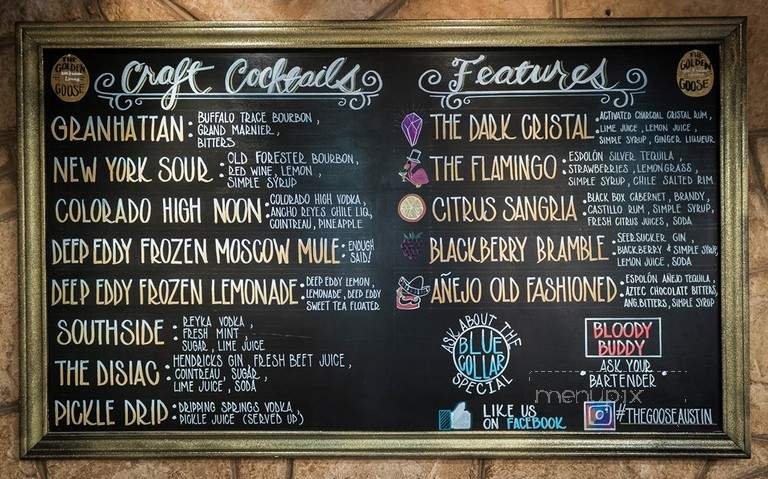 THE GOLDEN GOOSE
Craft Cocktails
GRANHATTAN: BUFFALO TRACE BOURBON,
GRAND MARNIER,
BITTERS
NEW YORK SOUR: OLD FORESTER BOURBON,
RED WINE, LEMON,
SIMPLE SYRUP
COLORADO HIGH NOON: COLORADO HIGH VODKA,
ANCHO REYES CHILE LIQ.,
COINTREAU, PINEAPPLE
DEEP EDDY FROZEN MOSCOW MULE: ENOUGH
SAID!
DEEP EDDY FROZEN LEMONADE: DEEP EDDY LEMON,
LEMONADE, DEEP EDDY
SWEET TEA FLOATER
SOUTHSIDE: REYKA VODKA,
FRESH MINT,
SUGAR, LIME JUICE
THE DISIAC: HENDRICKS GIN, FRESH BEET JUICE,
COINTREAU, SUGAR,
LIME JUICE, SODA
PICKLE DRIP: DRIPPING SPRINGS VODKA,
PICKLE JUICE (SERVED UP)
Features
THE GOLDEN GOOSE
THE DARK CRISTAL: ACTIVATED CHARCOAL CRISTAL RUM,
LIME JUICE, LEMON JUICE,
SIMPLE SYRUP, GINGER LIQUEUR
THE FLAMINGO: ESPOLÓN SILVER TEQUILA,
STRAWBERRIES, LEMONGRASS,
SIMPLE SYRUP, CHILE SALTED RIM
CITRUS SANGRIA: BLACK BOX CABERNET, BRANDY,
CASTILLO RUM, SIMPLE SYRUP,
FRESH CITRUS JUICES, SODA
BLACKBERRY BRAMBLE: SEERSUCKER GIN,
BLACKBERRY & SIMPLE SYRUP,
LEMON JUICE, SODA
AÑEJO OLD FASHIONED: ESPOLÓN AÑEJO TEQUILA,
AZTEC CHOCOLATE BITTERS,
ANG. BITTERS, SIMPLE SYRUP
ASK ABOUT THE
BLUE
COLLAR
SPECIAL
BLOODY
BUDDY
ASK YOUR
BARTENDER
menupix
LIKE US
ON FACEBOOK
#THEGOOSEAUSTIN